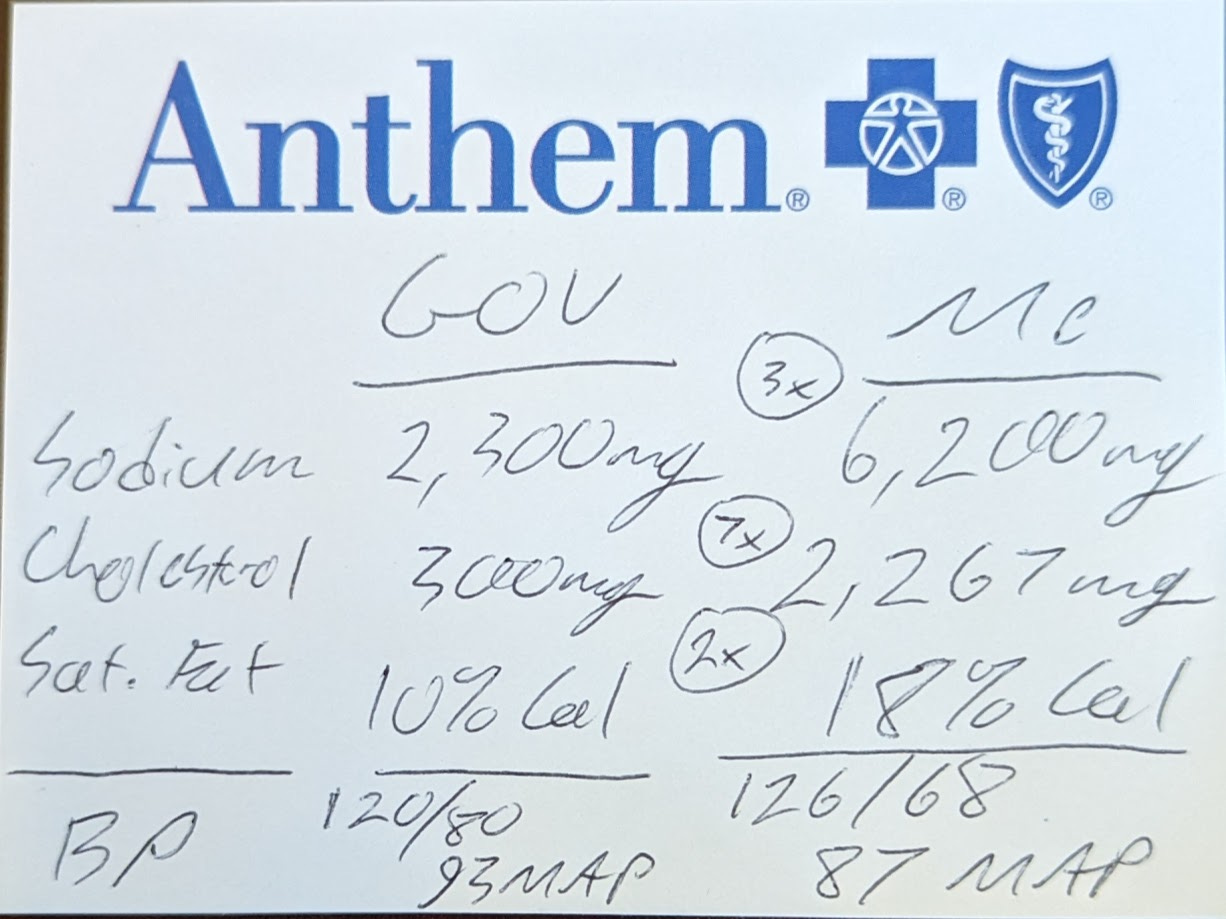 Anthem® ® ®
GOV Me
3x
Sodium 2,300mg 6,200mg
7x
Cholesterol 300mg 2,267mg
2x
Sat. Fat 10% Cal 18% Cal
BP 120/80 126/68
93 MAP 87 MAP